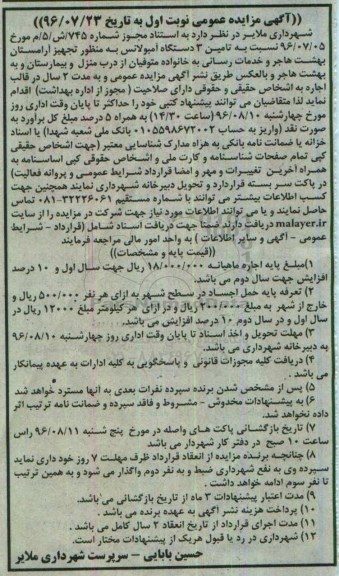 ((آگهی مزایده عمومی نوبت اول به تاریخ ۹۶/۰۷/۲۳))
شهرداری ملایر در نظر دارد به استناد مجوز شماره ۷۴۵/ش/۵/م مورخ
۹۶/۰۷/۰۵ نسبت به تامین ۳ دستگاه آمبولانس به منظور تجهیز آرامستان
بهشت هاجر و خدمات رسانی به خانواده متوفیان از درب منزل و بیمارستان و به
بهشت هاجر و بالعکس طریق نشر آگهی مزایده عمومی و به مدت ۲ سال در قالب
اجاره به اشخاص حقیقی و حقوقی دارای صلاحیت (مجوز از اداره بهداشت) اقدام
نماید لذا متقاضیان می توانند پیشنهاد کتبی خود را حداکثر تا پایان وقت اداری روز
مورخ چهارشنبه ۹۶/۰۸/۱۰ (ساعت ۱۴/۳۰) به همراه ۵ درصد مبلغ کل برآورد به
صورت نقد (واریز به حساب ۰۱۰۵۵۹۸۶۷۲۰۰۲ بانک ملی شعبه شهدا) یا اسناد
خزانه یا ضمانت نامه بانکی به همراه مدارک شناسایی معتبر (جهت اشخاص حقیقی
کپی تمام صفحات شناسنامه و کارت ملی و اشخاص حقوقی کپی اساسنامه به
همراه آخرین تغییرات و مهر و امضا قرارداد شرایط عمومی و پروانه فعالیت)
در پاکت سر بسته قرارداد و تحویل دبیرخانه شهرداری نمایند همچنین جهت
کسب اطلاعات بیشتر می توانند با شماره مستقیم ۳۲۲۲۶۰۶۱-۰۸۱ تماس
حاصل نمایند و یا می توانند اطلاعات مورد نیاز جهت شرکت در مزایده را از سایت
malayer.ir دریافت دارند ضمنا جهت دریافت اسناد شامل (قرارداد – شرایط
عمومی – آگهی و سایر اطلاعات) به واحد امور مالی مراجعه فرمایند
((قیمت پایه و مشخصات))
۱)مبلغ پایه اجاره ماهیانه ۱۸/۰۰۰/۰۰۰ ریال جهت سال اول و ۱۰ درصد
افزایش جهت سال دوم می باشد.
۲) تعرفه پایه حمل اجساد در سطح شهر به ازای هر نفر ۵۰۰/۰۰۰ ریال و
خارج از شهر به مبلغ ۲۰۰/۰۰۰ ریال و در ازای هر کیلومتر مبلغ ۱۲۰۰۰ ریال در
سال اول و در سال دوم ۱۰ درصد افزایش می باشد.
۳) مهلت تحویل و اخذ اسناد تا پایان وقت اداری روز چهارشنبه ۹۶/۰۸/۱۰
به دبیرخانه شهرداری می باشد.
۴) دریافت کلیه مجوزات قانونی و پاسخگویی به کلیه ادارات به عهده پیمانکار
می باشد.
۵) پس از مشخص شدن برنده سپرده نفرات بعدی به آنها مسترد خواهد شد
۶) به پیشنهادات مخدوش – مشروط و فاقد سپرده و ضمانت نامه ترتیب اثر
داده نخواهد شد.
۷) تاریخ بازگشائی پاکت های واصله در مورخ پنج شنبه ۹۶/۰۸/۱۱ راس
ساعت ۱۰ صبح در دفتر کار شهردار می باشد.
۸) چنانچه برنده مزایده از انعقاد قرارداد ظرف مهلت ۷ روز خود داری نماید
سپرده وی به نفع شهرداری ضبط و به نفر دوم واگذار می شود و به همین ترتیب
تا نفر سوم ادامه خواهد داشت.
۹) مدت اعتبار پیشنهادات ۳ ماه از تاریخ بازگشائی می باشد.
۱۰) پرداخت هزینه نشر آگهی به عهده برنده می باشد.
۱۱) مدت اجرای قرارداد از تاریخ انعقاد ۲ سال کامل می باشد.
۱۲) شهرداری در رد یا قبول هریک از پیشنهادات مختار است.
حسین بابایی – سرپرست شهرداری ملایر